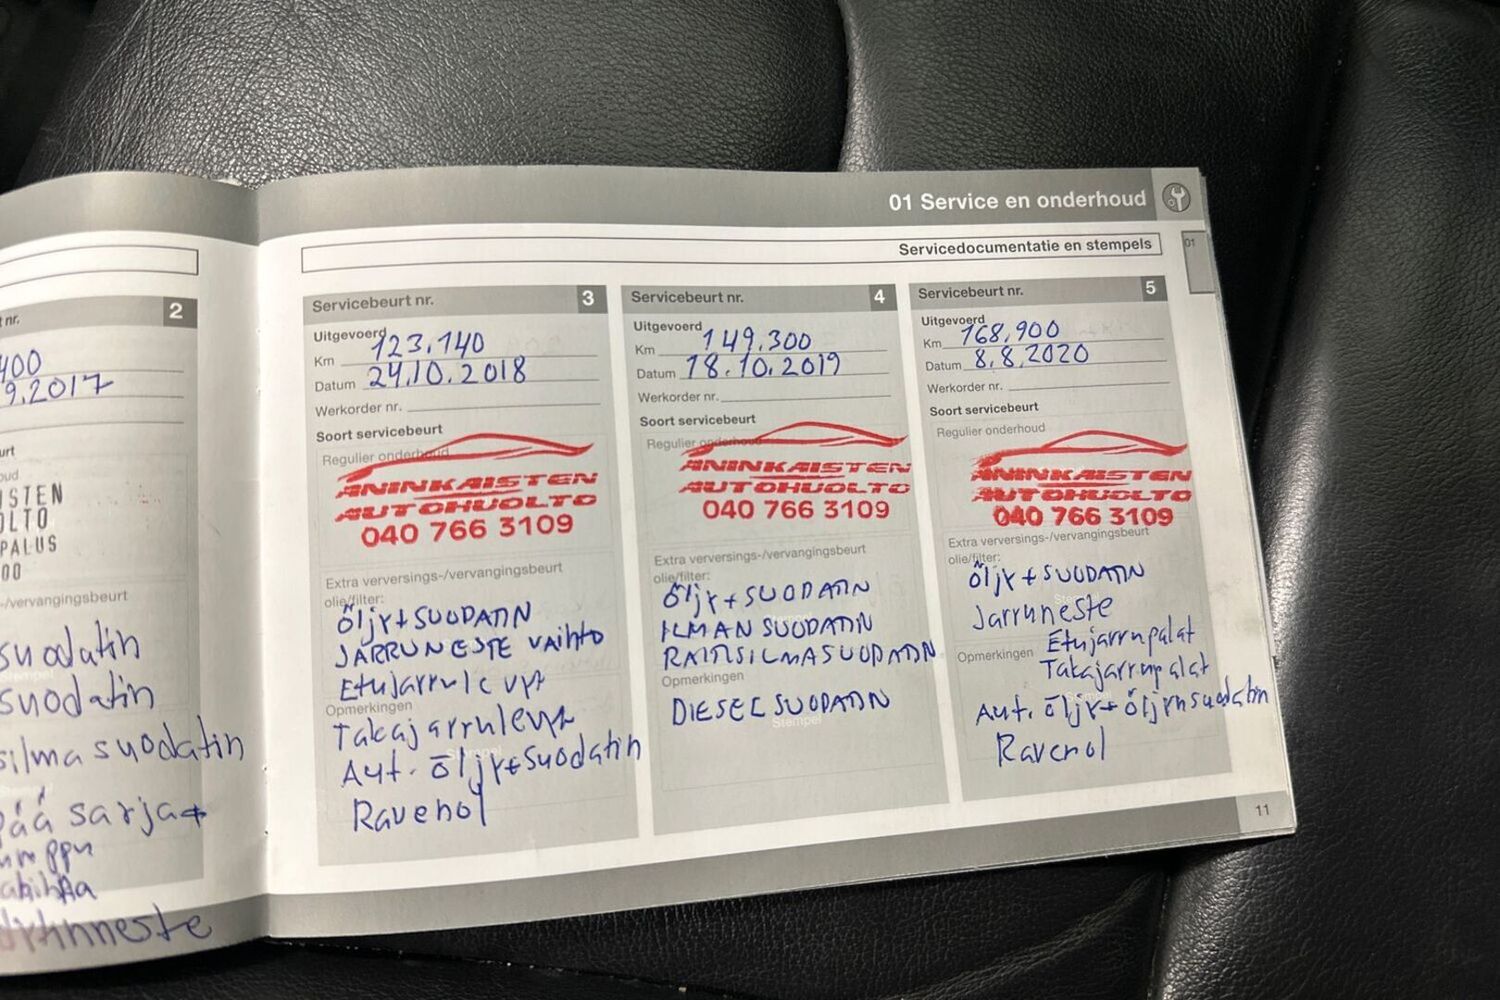 01 Service en onderhoud
Servicedocumentatie en stempels
01
nr.
2
400
9.2017
suodatin
suodatin
silmasuodatin
sarja+
Servicebeurt nr.
3
Uitgevoerd
Km 123.140
Datum 24.10.2018
Werkorder nr.
Soort servicebeurt
Regulier onderhoud
ANINKAISTEN
AUTOHUOLTO
040 766 3109
Extra verversings-/vervangingsbeurt
olie/filter:
Öljy+SUODATIN
JARRUNESTE VAIHTO
Etujarrulevyt
Opmerkingen
Takajarrulevyt
Stempel
Aut. öljy+suodatin
Ravenol
Servicebeurt nr.
4
Uitgevoerd
Km 149.300
Datum 18.10.2019
Werkorder nr.
Soort servicebeurt
Regulier onderhoud
ANINKAISTEN
AUTOHUOLTO
040 766 3109
Extra verversings-/vervangingsbeurt
olie/filter:
Öljy+SUODATIN
ILMANSUODATIN
RAITISILMASUODATIN
Opmerkingen
DIESELSUODATIN
Stempel
Servicebeurt nr.
5
Uitgevoerd
Km 168,900
Datum 8.8.2020
Werkorder nr.
Soort servicebeurt
Regulier onderhoud
ANINKAISTEN
AUTOHUOLTO
040 766 3109
Extra verversings-/vervangingsbeurt
olie/filter:
Öljy+SUODATIN
Jarruneste
Etujarrupalat
Opmerkingen
Takajarrupalat
Aut. öljy+öljynsuodatin
Ravenol
11